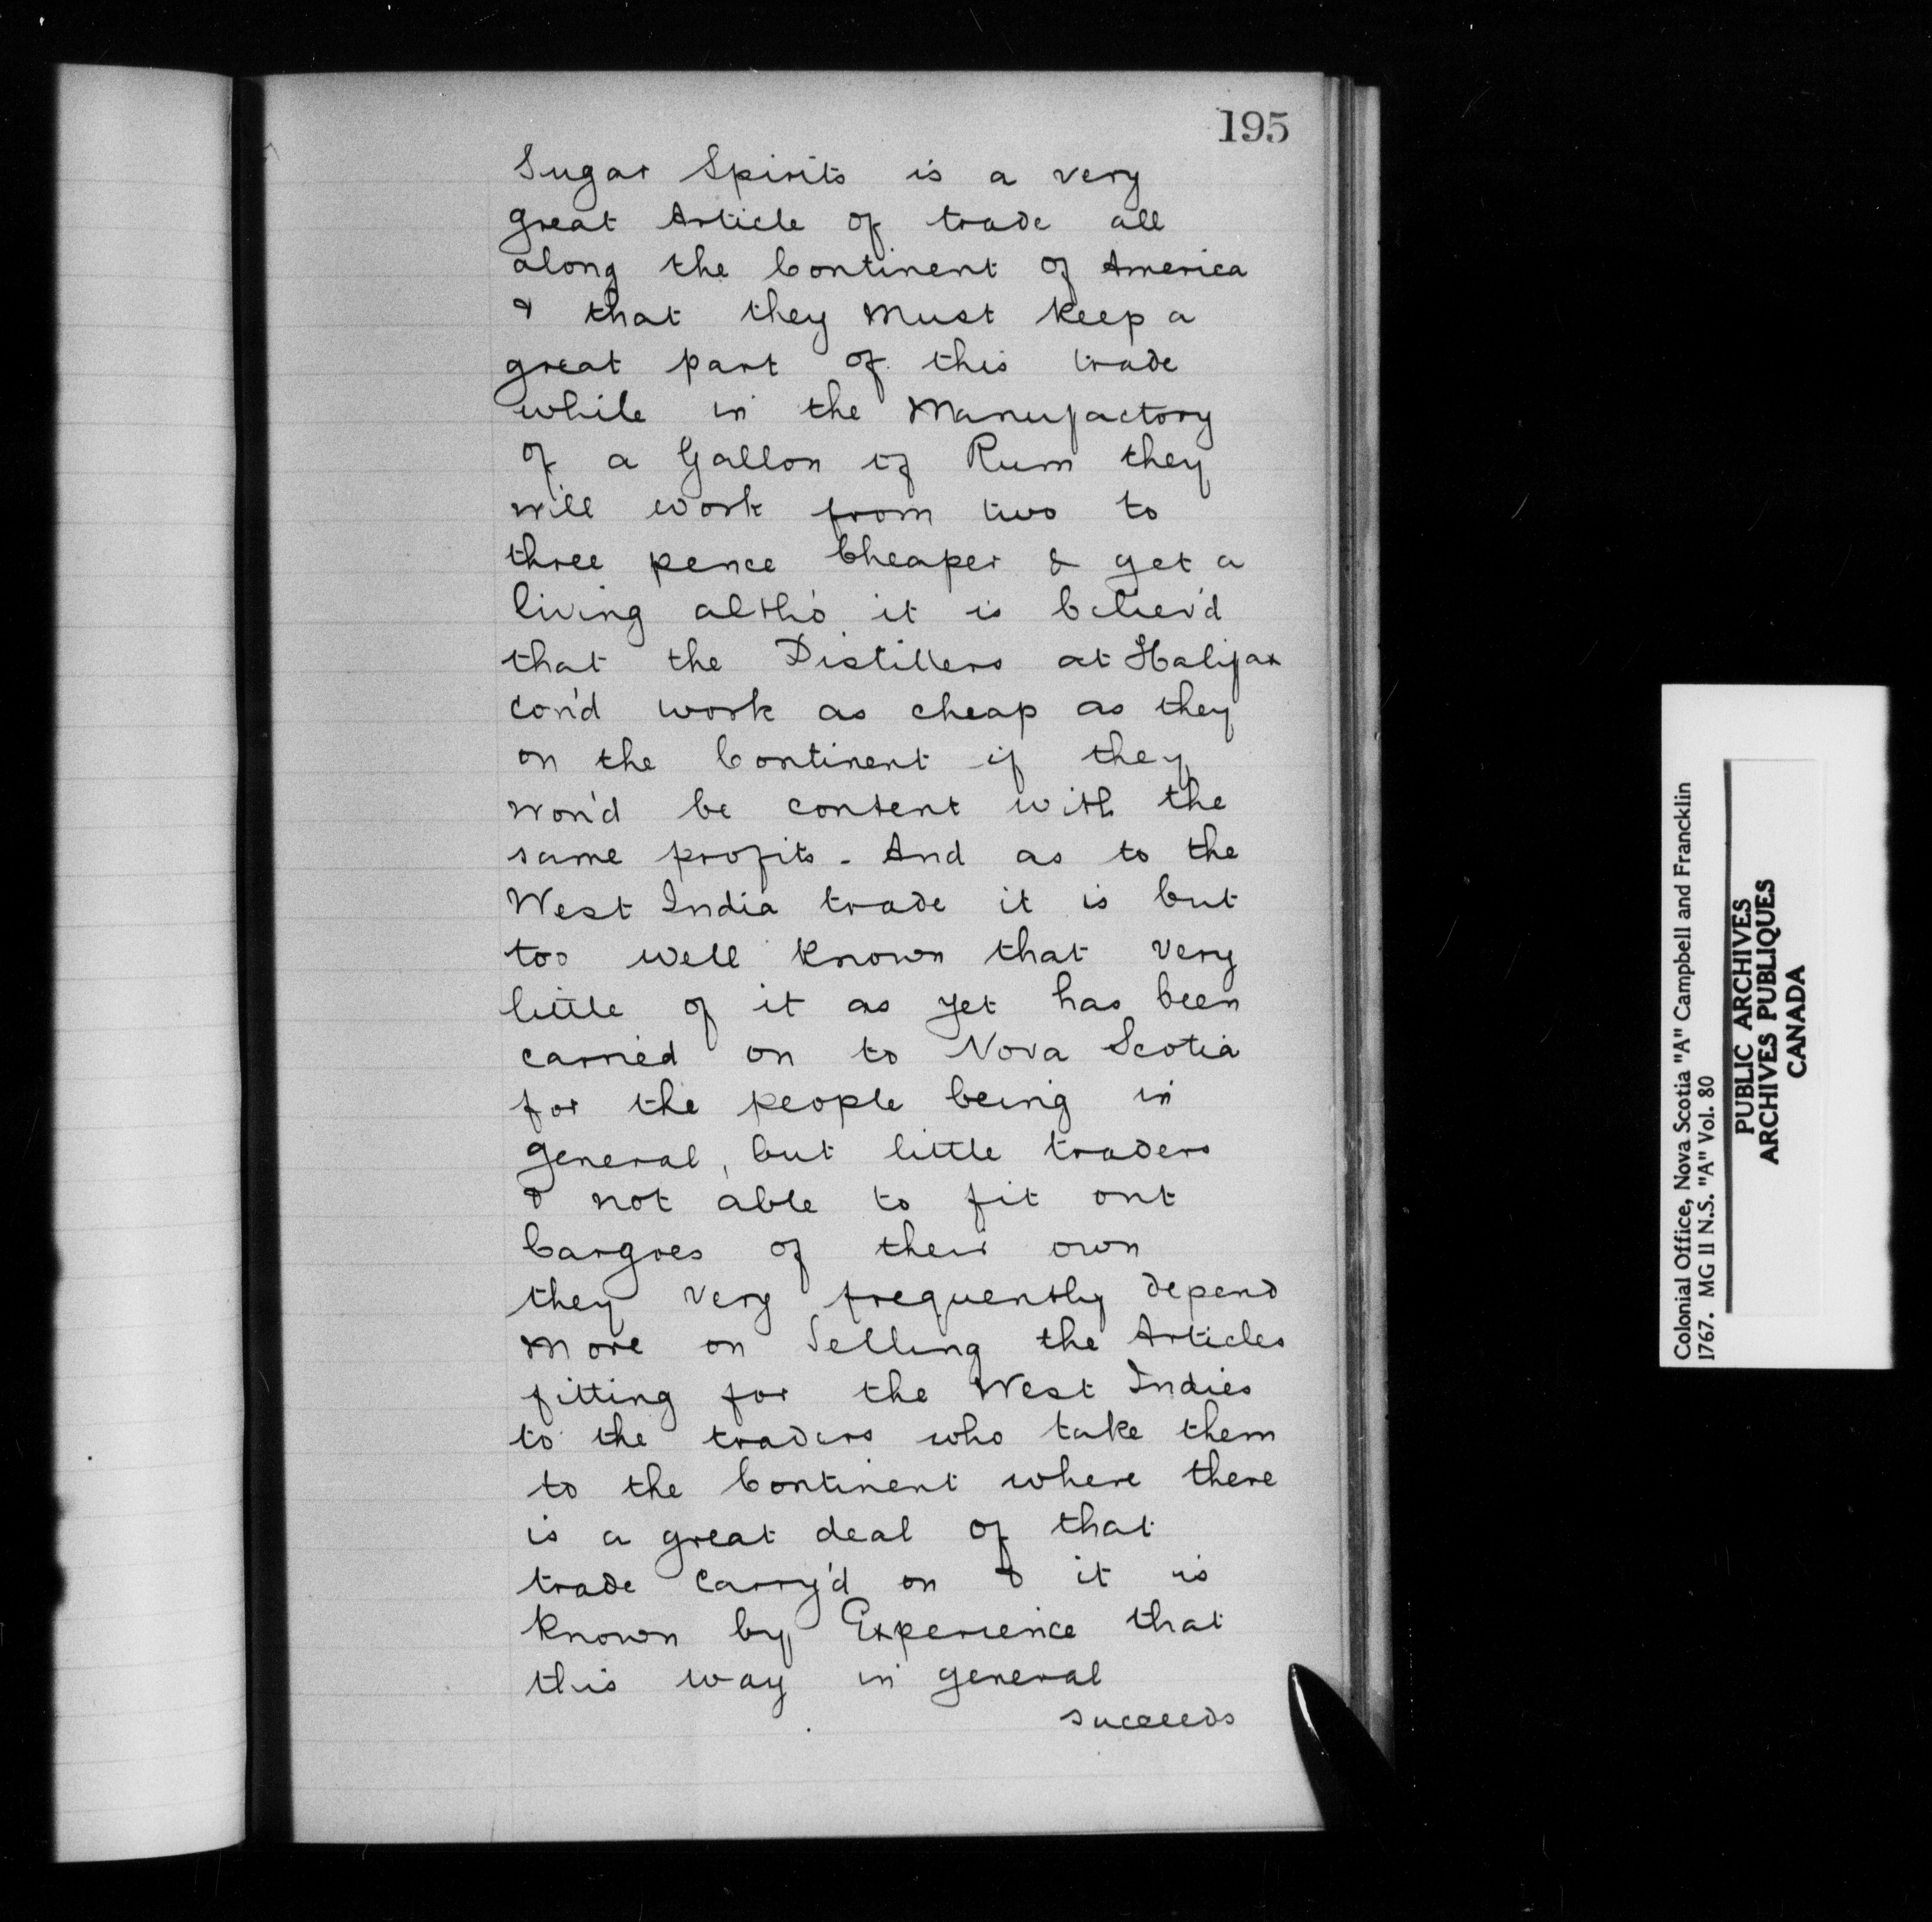 195
Sugar Spirits is a very
great Article of trade all
along the Continent of America
& that they must keep a
great part of this trade
while in the Manufactory
of a Gallon of Rum they
will work from two to
three pence Cheaper & get a
living altho' it is believ'd
that the Distillers at Halifax
cou'd work as cheap as they
on the Continent if they
wou'd be content with the
same profits - And as to the
West India trade it is but
too well known that very
little of it as yet has been
carried on to Nova Scotia
for the people being in
general, but little traders
& not able to fit out
Cargoes of their own
they very frequently depend
more on Selling the Articles
fitting for the West Indies
to the traders who take them
to the Continent where there
is a great deal of that
trade Carry'd on & it is
known by Experience that
this way in general
succeeds
Colonial Office, Nova Scotia "A" Campbell and Francklin
1767. MG II N.S. "A" Vol. 80
PUBLIC ARCHIVES
ARCHIVES PUBLIQUES
CANADA